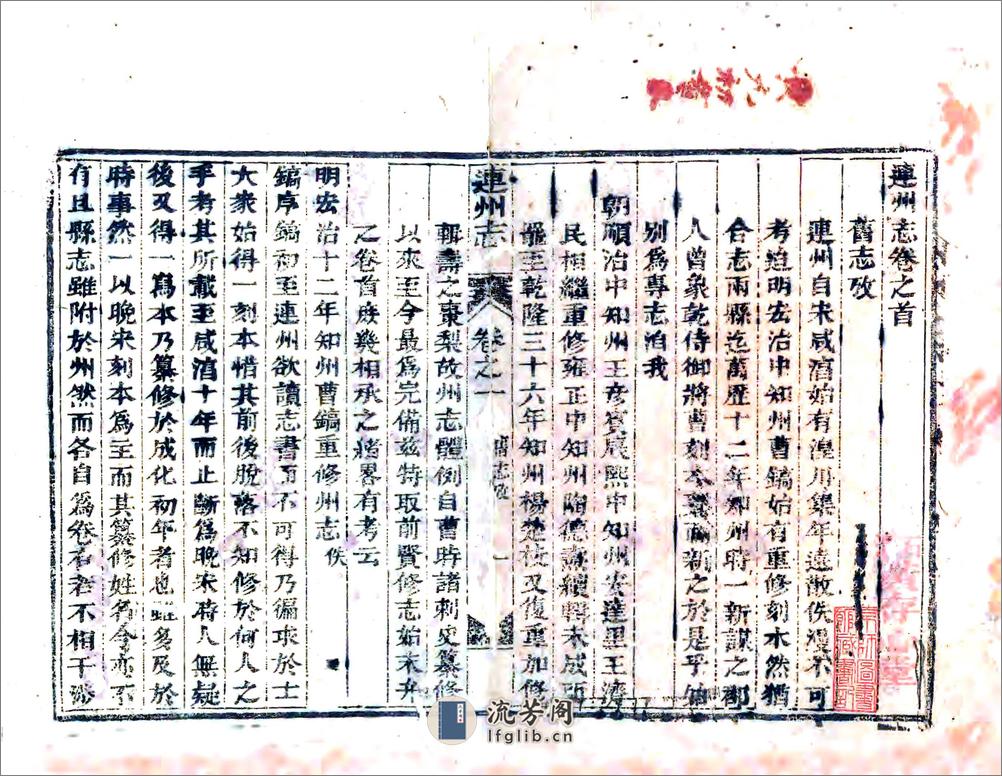 連州志卷之首
舊志攷
連州自宋咸淳始有湟川集年遠散佚漫不可
考迨明宏治中知州曹鎬始有重修刻本然猶
合志兩縣迄萬歷十二年知州時一新謀之郡
人曾象乾侍御將曹刻本釐而新之於是乎始
別為專志洎我
朝順治中知州王彥賓康熙中知州安達里王濟
民相繼重修雍正中知州陶德燾續輯未成
罷至乾隆三十六年知州楊楚枝又復重加修
連州志 卷之一 舊志攷 一
輯壽之棗梨故州志體例自曹時諸刺史纂修
以來至今最為完備茲特取前賢修志始末弁
之卷首庶幾相承之緒畧有考云
明宏治十二年知州曹鎬重修州志佚
鎬序鎬初至連州欲讀志書而不可得乃徧求於士
大衆始得一刻本惜其前後脫落不知修於何人之
手考其所載至咸淳十年而止斷為晚宋時人無疑
後又得一寫本乃纂修於成化初年者也雖多及於
時事然一以晚宋刻本為主而其纂修姓名今亦不
存且縣志雖附於州然而各自為卷若者不相干涉
流芳阁
lfglib.cn